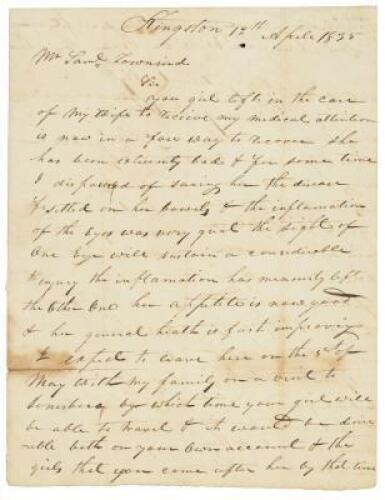 Kingston 12th April 1835
Mr Saml Townsend
Sir
your girl left in the care
of my Wife to receive my medical attention
is now in a fair way to recover she
has been extremely bad & for some time
I dispaired of saving her the disease
settled on her bowels & the inflamation
of the Eyes was very great the sight of
One Eye will sustain a considerable
injury the inflamation has measurely left
the Other One her appetite is now good
& her general health is fast improving
I expect to leave here on the 5th of
May with my family on a visit to
by which time your girl will
be able to travel & it would be desir
able both on your own account & the
girls that you come after her by that time